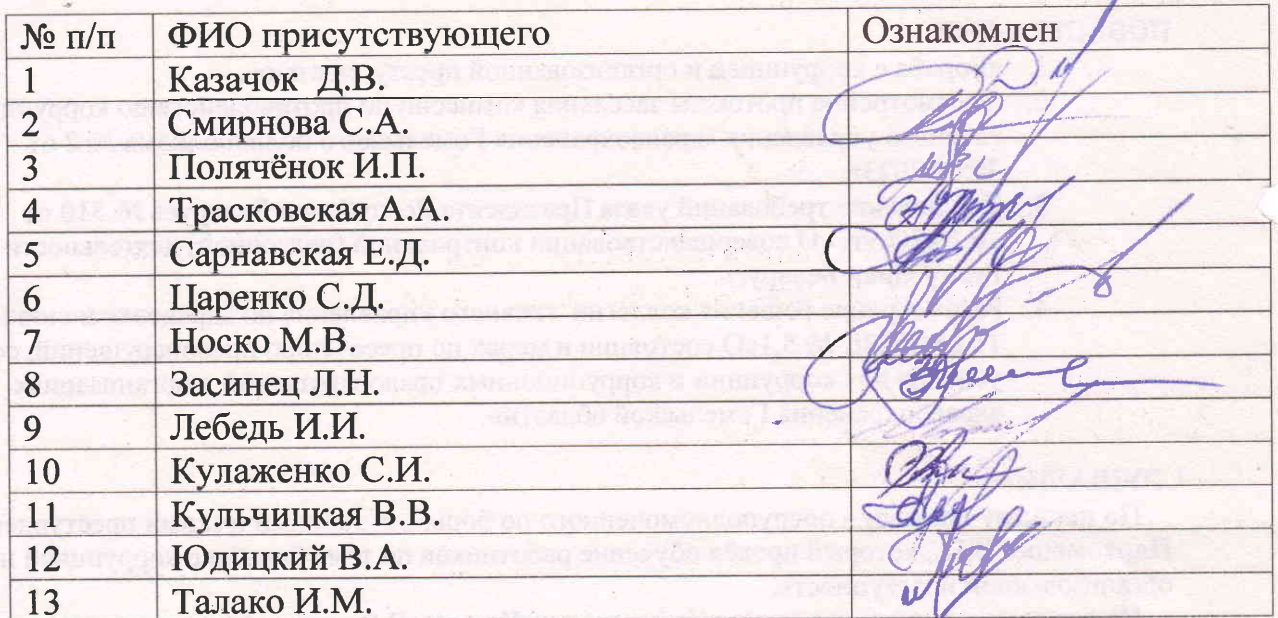 № п/п ФИО присутствующего Ознакомлен
1 Казачок Д.В.
2 Смирнова С.А.
3 Полячёнок И.П.
4 Трасковская А.А.
5 Сарнавская Е.Д.
6 Царенко С.Д.
7 Носко М.В.
8 Засинец Л.Н.
9 Лебедь И.И.
10 Кулаженко С.И.
11 Кульчицкая В.В.
12 Юдицкий В.А.
13 Талако И.М.